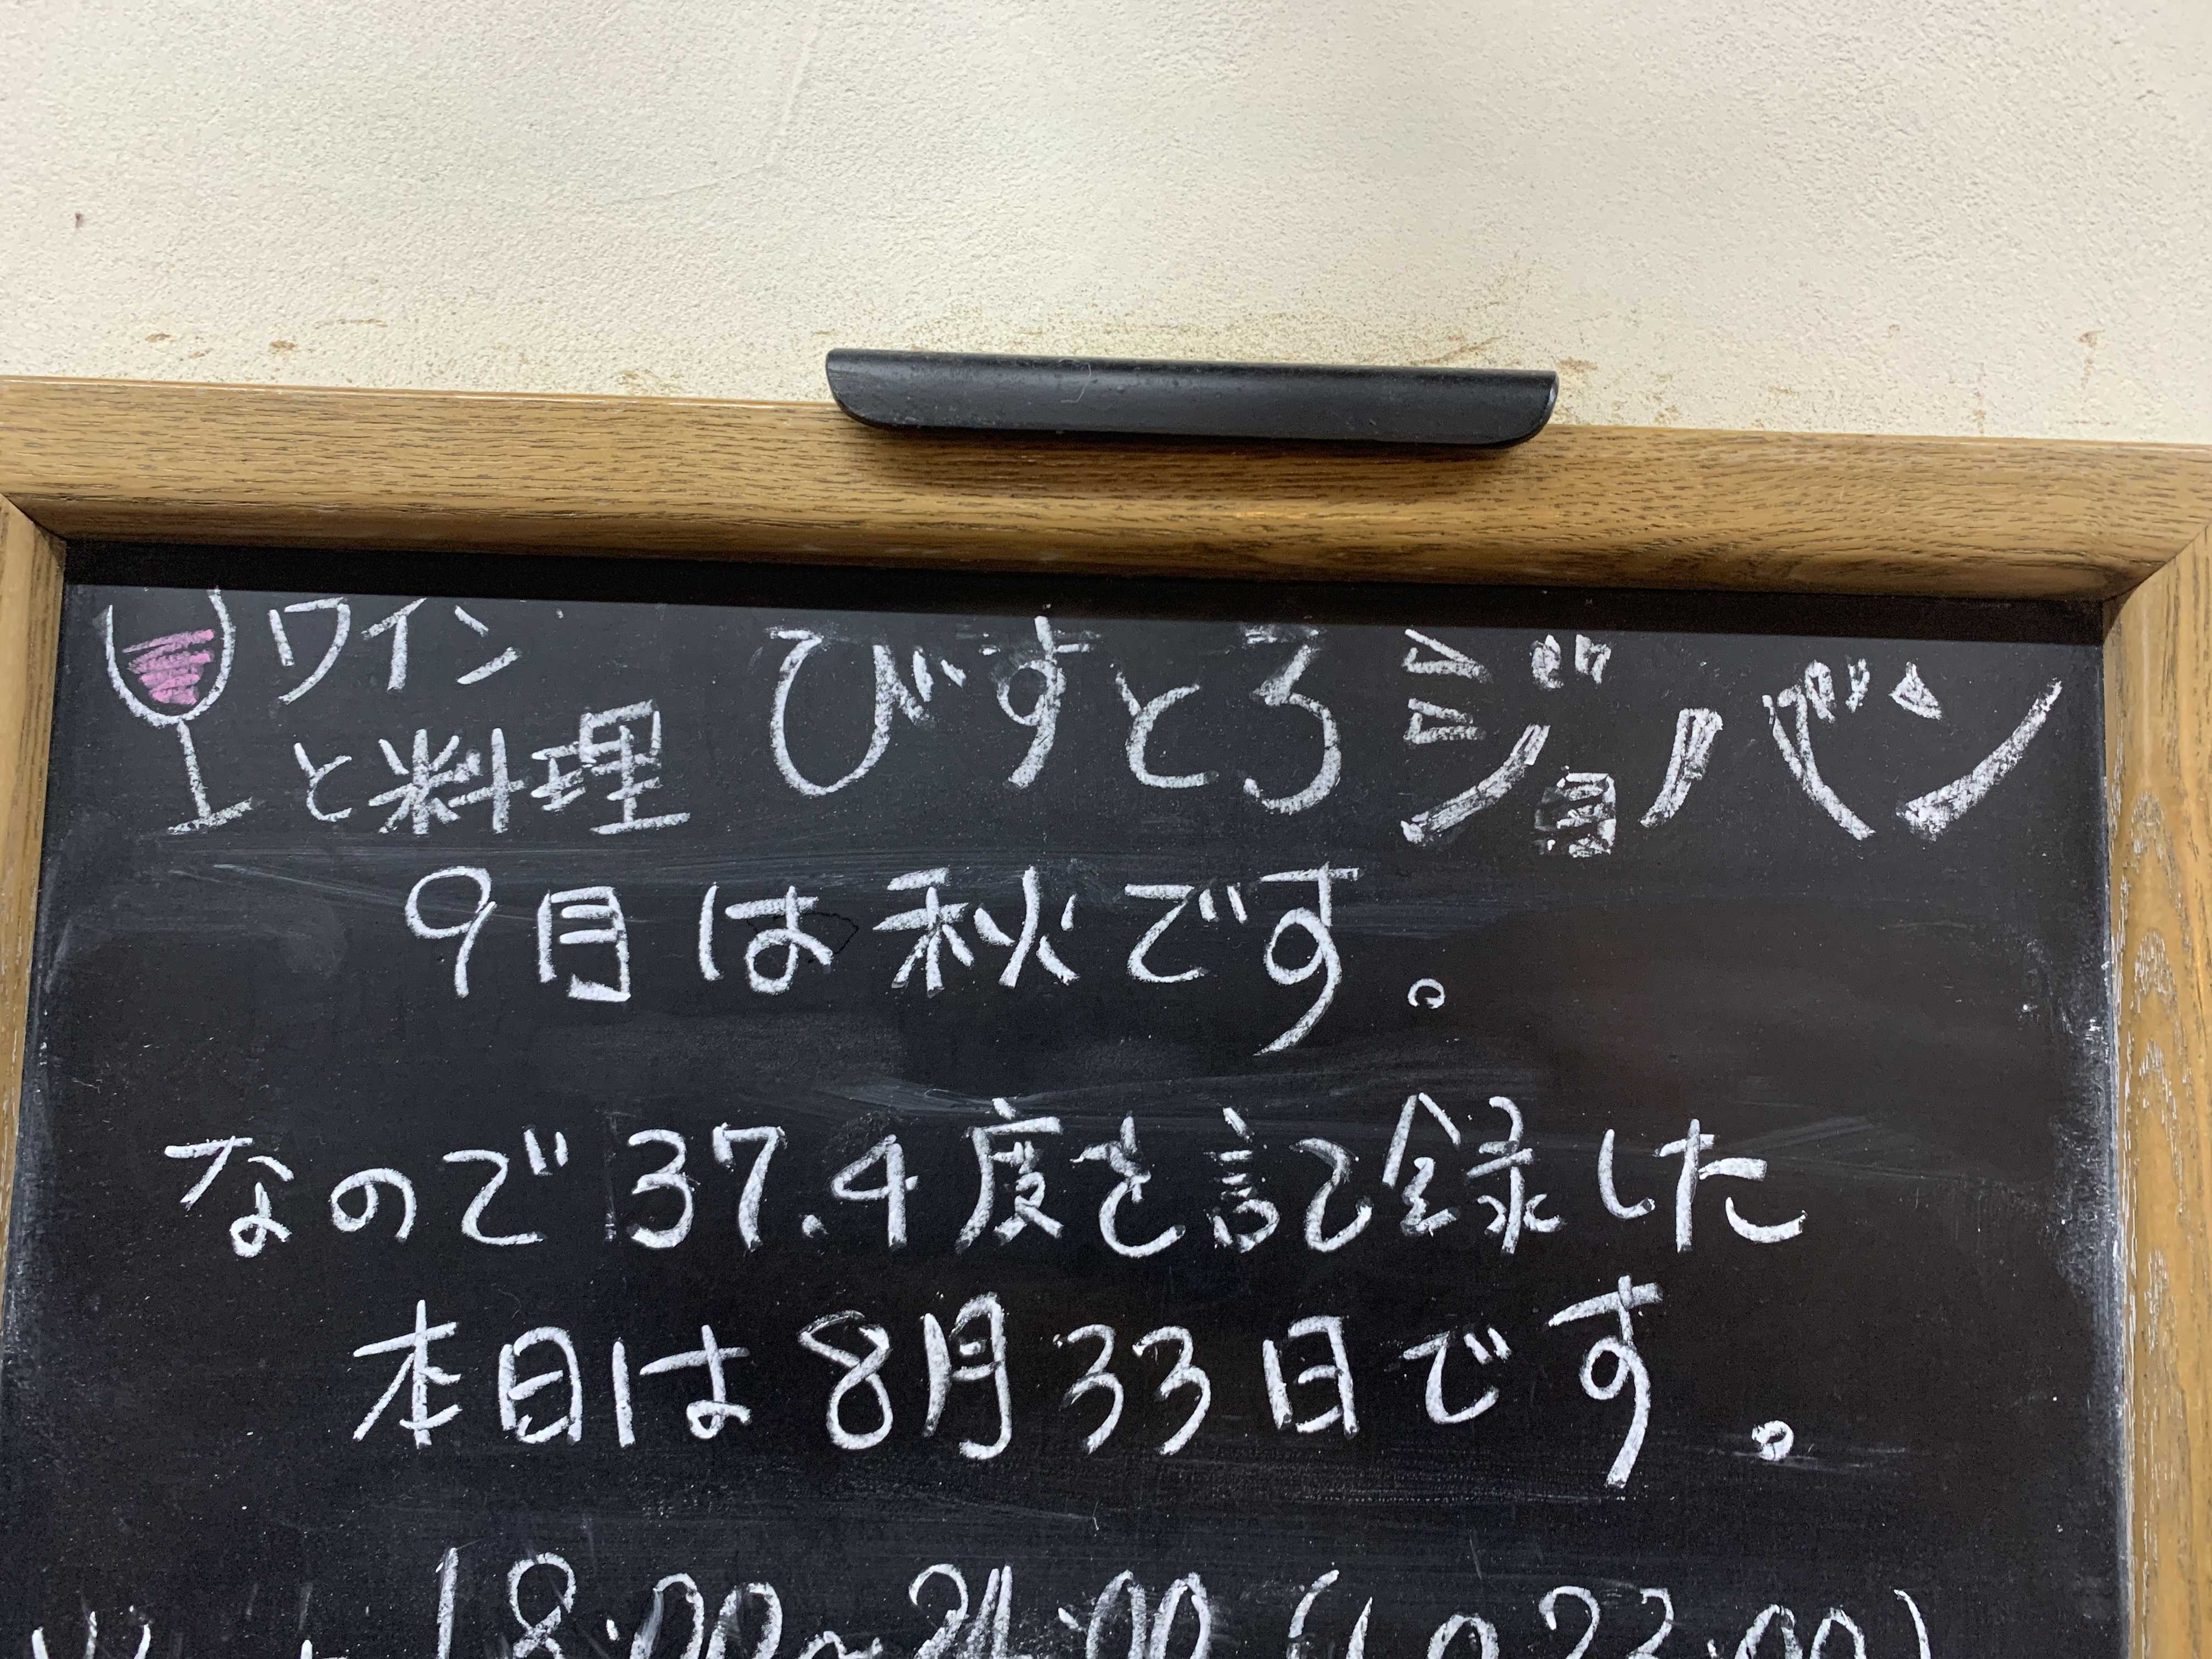 ワイン
と料理 びすとろ ジョバン
9月は秋です。
なので37.4度を記録した
本日は8月33日です。
18:00~24:00 (L.O 23:00)